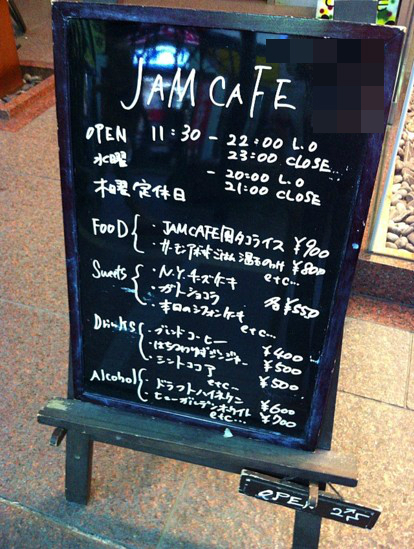 JAM CAFE
OPEN 11:30 - 22:00 L.O
23:00 CLOSE
水曜 - 20:00 L.O
21:00 CLOSE
木曜定休日
FOOD
・JAMCAFE風タコライス ¥900
・サーモンアボカドごはん 温玉のっけ ¥800
etc...
Sweets
・N.Y.チーズケーキ
・ガトーショコラ 各¥550
・本日のシフォンケーキ
etc...
Drinks
・ブレンドコーヒー ¥400
・はちみつゆずジンジャー ¥500
・ミントココア ¥500
etc...
Alcohol
・ドラフトハイネケン ¥600
・ヒューガルデンホワイト ¥700
etc...
OPEN 2F